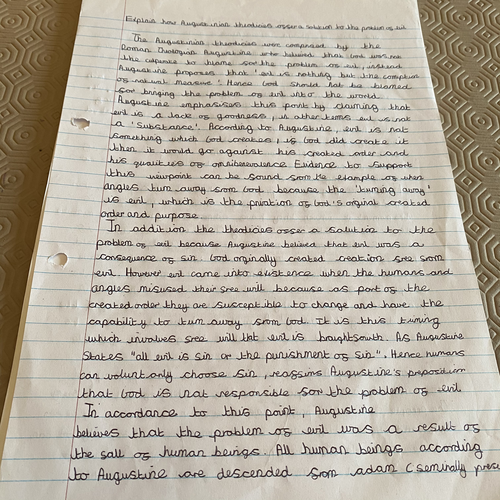 Explain how Augustinian theodicies offer a solution to the problem of evil
The Augustinian theodicies was composed by the
Roman Theologian Augustine who believed that God was not
the capable to blame for the problem of evil, instead
Augustine proposes that 'evil is nothing but the corruption
of natural measure'. Hence God should not be blamed
for bringing the problem of evil into the world.
Augustine emphasises this point by claiming that
evil is a lack of goodness, in other terms evil is not
a 'substance'. According to Augustine, evil is not
something which God creates, if God did create it
then it would go against his created order and
his qualities of omnibenevolence. Evidence to support
this viewpoint can be found from the example of when
angles turn away from God, because the 'turning away'
is evil, which is the privation of God's orginal created
order and purpose.
In addition the theodicies offer a solution to the
problem of evil because Augustine believed that evil was a
consequence of sin. God orginally created creation free from
evil. However evil came into existence when the humans and
angles misused their free will because as part of the
created order they are susceptible to change and have the
capability to turn away from God. It is this turning
which involves free will that evil is brought forth. As Augustine
States "all evil is sin or the punishment of sin". Hence humans
can voluntarily choose sin, reaffirms Augustine's proposition
that God is not responsible for the problem of evil
In accordance to this point, Augustine
believes that the problem of evil was a result of
the fall of human beings. All human beings according
to Augustine are descended from adam (seminally